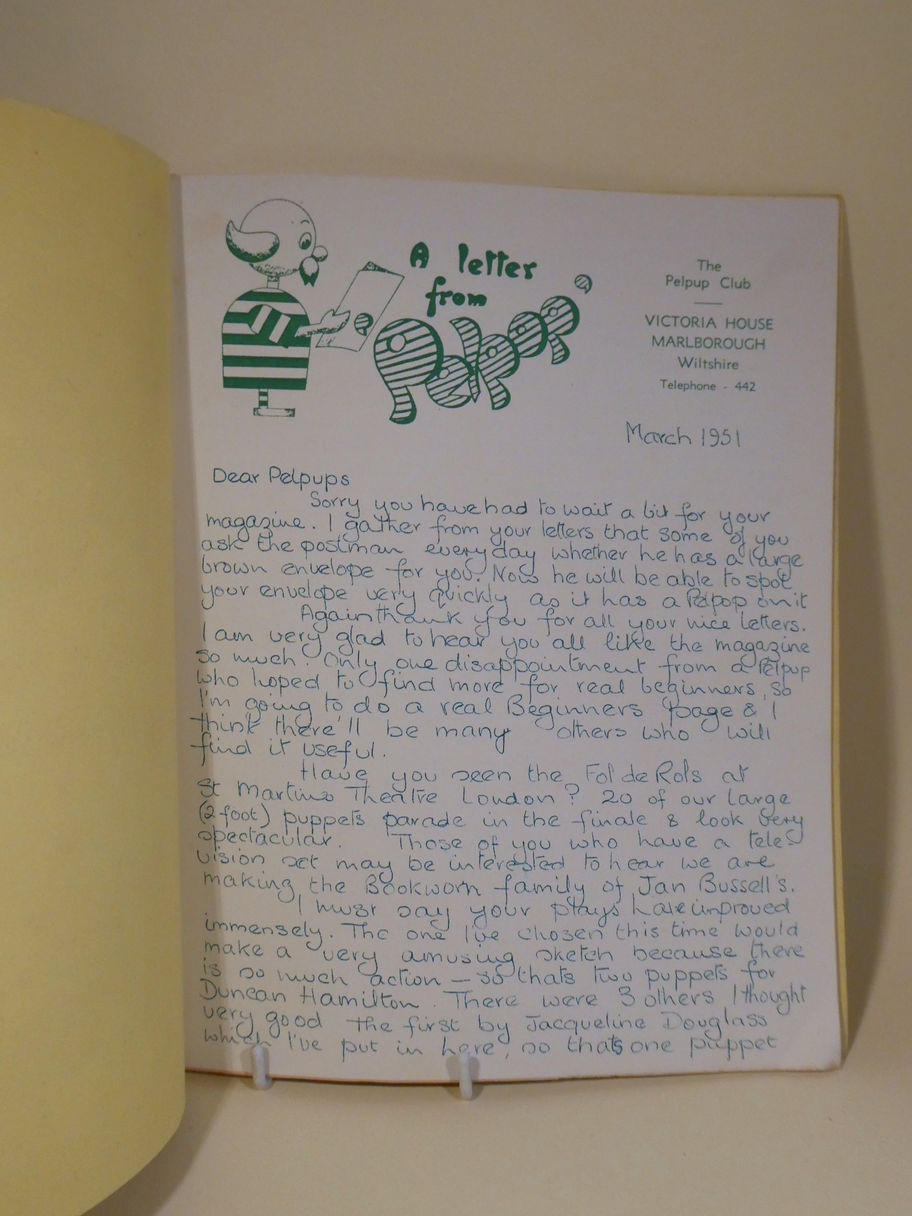 A letter
from
Pelpop
The
Pelpup Club
VICTORIA HOUSE
MARLBOROUGH
Wiltshire
Telephone - 442
March 1951
Dear Pelpups
Sorry you have had to wait a bit for your
magazine. I gather from your letters that some of you
ask the postman every day whether he has a large
brown envelope for you. Now he will be able to spot
your envelope very quickly as it has a Pelpop on it
Again thank you for all your nice letters.
I am very glad to hear you all like the magazine
so much. Only one disappointment from a Pelpup
who hoped to find more for real beginners, so
I'm going to do a real Beginners page & I
think there'll be many others who will
find it useful.
Have you seen the Fol de Rols at
St Martins Theatre London? 20 of our large
(2 foot) puppets parade in the finale & look very
spectacular. Those of you who have a tele-
vision set may be interested to hear we are
making the Bookworm family of Jan Bussell's.
I must say your plays have improved
immensely. The one I've chosen this time would
make a very amusing sketch because there
is so much action – so thats two puppets for
Duncan Hamilton. There were 3 others I thought
very good the first by Jacqueline Douglass
which I've put in here, so thats one puppet